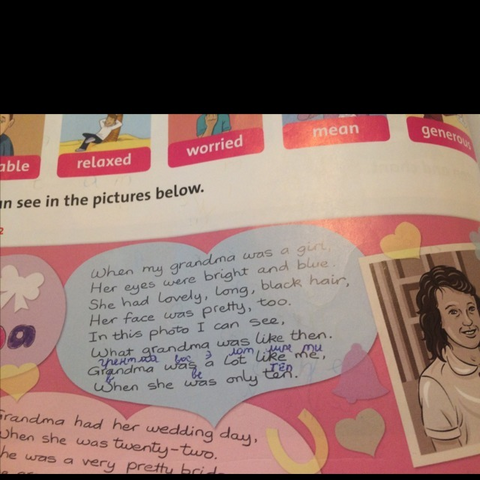 able
relaxed
worried
mean
generous
n see in the pictures below.
2
a
When my grandma was a girl,
Her eyes were bright and blue.
She had lovely, long, black hair,
Her face was pretty, too.
In this photo I can see,
What grandma was like then.
Grandma was a lot like me,
When she was only ten.
Grandma had her wedding day,
When she was twenty-two.
he was a very pretty bride